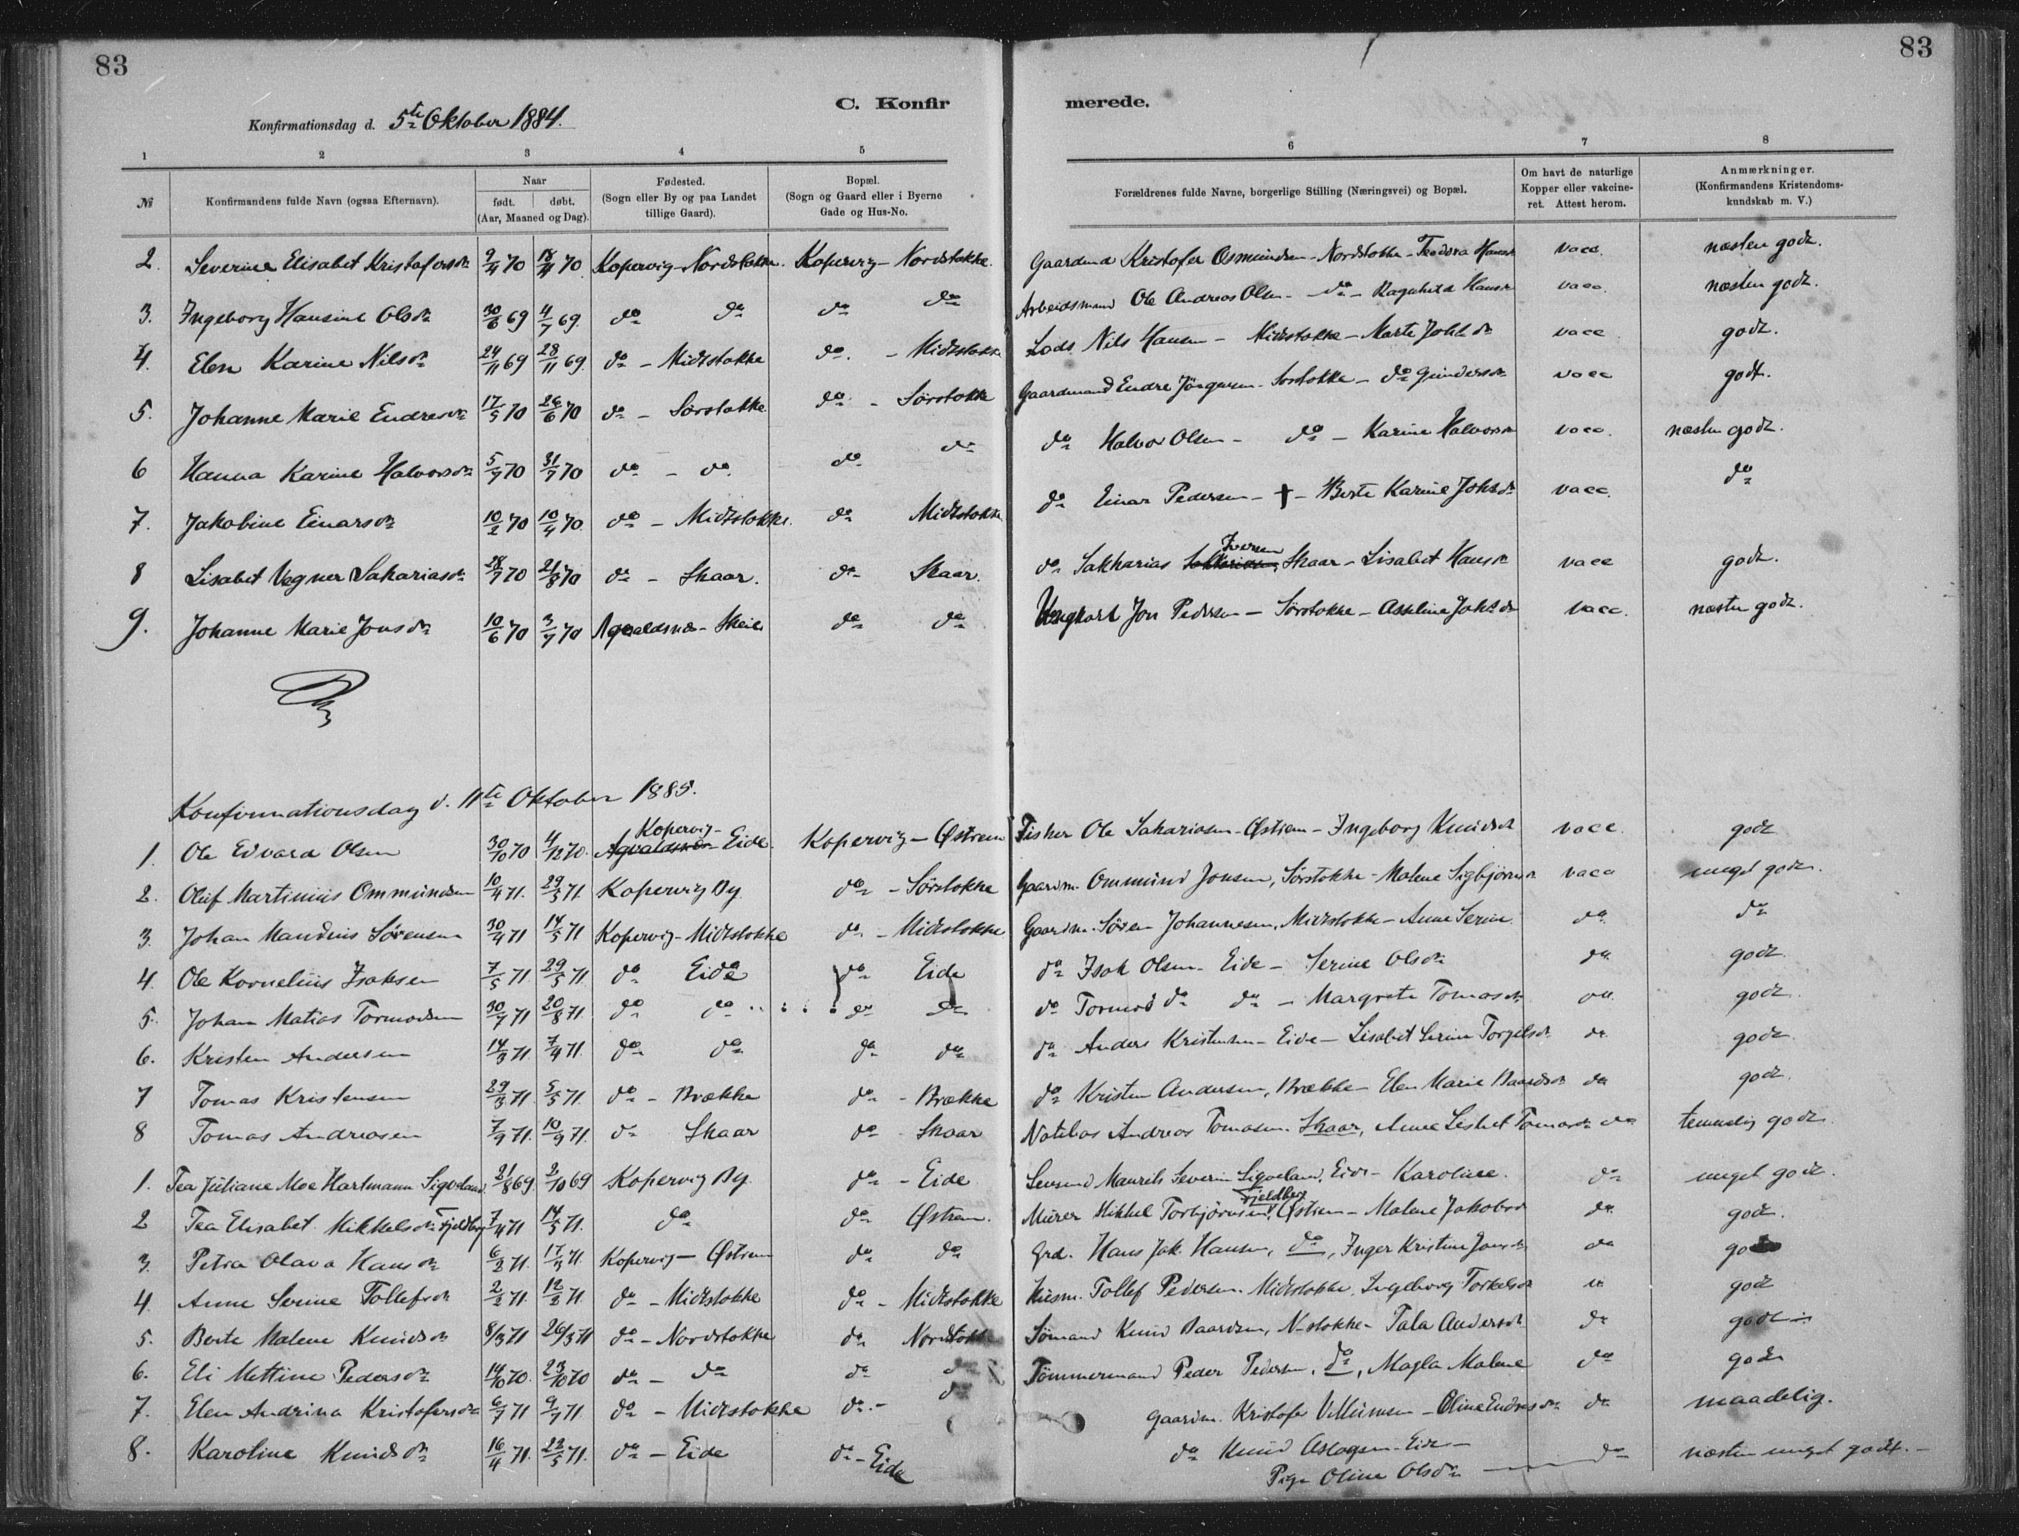 83
83
C. Konfir merede.
Konfirmationsdag d. 5te Oktober 1884.
1 2 3 4 5 6 7 8
№ Konfirmandens fulde Navn (ogsaa Efternavn). Naar født. døbt. (Aar, Maaned og Dag). Fødested. (Sogn eller By og paa Landet tillige Gaard). Bopæl. (Sogn og Gaard eller i Byerne Gade og Hus-No. Forældrenes fulde Navne, borgerlige Stilling (Næringsvei) og Bopæl. Om havt de naturlige Kopper eller vakcineret. Attest herom. Anmærkninger. (Konfirmandens Kristendomskundskab m. V.)
2. Severine Elisabet Kristofersdr 9/4 70 Kopervig - Nordstokke. Kopervig - Nordstokke. Gaardmd Kristofer Osmundsen - Nordstokke - Teodora Hansdr vacc. næsten godt.
3. Ingeborg Hansine Olsdr 30/6 69 4/7 69. do do do do Arbeidsmand Ole Andreas Olsen - do - Ragnhild Hansdr vacc. næsten godt.
4. Elen Karine Nilsdr 24/11 69 28/11 69. do - Midtstokke do. - Midtstokke Lods Nils Hansen - Midtstokke - Marte Johsdr vacc godt.
5. Johanne Marie Endresdr 17/5 70 26/6 70 do - Sørstokke do - Sørstokke Gaardmand Endre Jörgensen - Sørstokke - do Gundersdr vacc godt.
6 Hanna Karine Halvorsdr 5/7 70 31/7 70 do - do. do do do Halvor Olsen - do - Karine Halvorsdr vacc. næsten godt.
7. Jakobine Einarsdr 10/2 70 10/4 70. do - Midtstokke. do Midtstokke do Einar Pedersen - † - Berte Karine Johsdr vacc. do
8 Lisabet Vegner Sakariasdr 28/7 70 21/8 70 do - Skaar. do Skaar. do Sakharias Iversen Skaar - Lisabet Hansdr vacc godt.
9. Johanne Marie Jonsdr 10/6 70 3/7 70 Agvaldsnæs - Skeie do do Ungkarl Jon Pedersen - Sørstokke - Asseline Johsdr vacc. næsten godt.
Konfirmationsdag d. 11te Oktober 1885.
1. Ole Edvard Olsen 30/10 70 4/12 70. Kopervig - Agvaldsnæs Eide. Kopervig - Østrem Fisker Ole Sakariasen - Østrem - Ingeborg Knudsdr vacc. godt
2. Oluf Martinius Ommundsen 10/4 71. 29/5 71 Kopervig By do - Sørstokke Gaardm. Ommund Jonsen, Sørstokke - Malene Sigbjørnsdr vacc meget godt.
3. Johan Mandius Sørensen 30/4 71 14/5 71 Kopervig - Midtstokke do. - Midtstokke Gaardm. Søren Johannesen, Midtstokke - Anne Serine do. do
4. Ole Kornelius Isaksen 7/5 71 29/5 71. do Eide do Eide do Isak Olsen - Eide - Serine Olsdr do. godt.
5. Johan Matias Tormodsen 30/7 71 20/8 71 do do do do do Tormod do do - Margrete Tomasdr do godt.
6. Kristen Andersen 14/3 71. 7/4 71. do do do do do Anders Kristensen - Eide - Lisabet Serine Torgilsdr do godt.
7 Tomas Kristensen 29/3 71. 5/5 71. do - Brække do - Brække do Kristen Andersen, Brække - Elen Marie Baardsdr do godt.
8 Tomas Andreasen 7/9 71. 10/9 71. do Skaar do - Skaar Notebas Andreas Tomasen. Skaar, Anne Lisbet Tomasdr do temmelig godt.
1. Tea Juliane Moe Hartmann Sigveland 21/8 69. 2/10 69 Kopervig By do - Eide Maurits Severin Sigveland, Eide - Karoline. do meget godt.
2 Tea Elisabet Mikkelsdr Fjeldberg 7/4 71 14/5 71. do do Østrem. Murer Mikkel Torbjørnsen Fjeldberg, Østrem - Malene Jakobsdr do. godt.
3. Petra Olava Hansdr 6/2 71. 17/3 71. Kopervig - Østrem do do Grd. Hans Jak. Hansen, do, Inger Kristine Jonsdr do godt
4. Anne Serine Tollefsdr 2/2 71. 12/2 71. do - Midtstokke do - Midtstokke Husm. Tollef Pedersen. Midtstokke. Ingeborg Torkelsdr do godt
5. Berte Malene Knudsdr 8/3 71 26/3 71 do - Nordstokke do Nordstokke Sømand Knud Baardsen, N-stokke - Tala Andersdr do godt
6. Eli Mettine Pedersdr 14/10 70. 23/10 70 do - do do do Tømmermand Peder Pedersen, do, Magla Malene do godt
7. Elen Andrina Kristofersdr 6/7 71 9/7 71. do - Midtstokke do. - do Gaardm. Kristofer Villumsen - Oline Endresdr do maadelig.
8. Karoline Knudsdr 16/4 71. 22/5 71. do - Eide do - Eide do Knud Aslagsen - Eide - Pige Oline Olsdr do næsten meget godt.